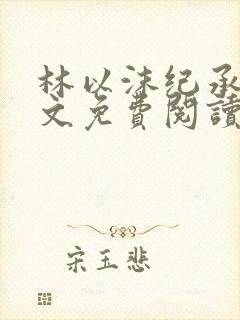 林以沫纪承
文免費閱讀
宋玉悲